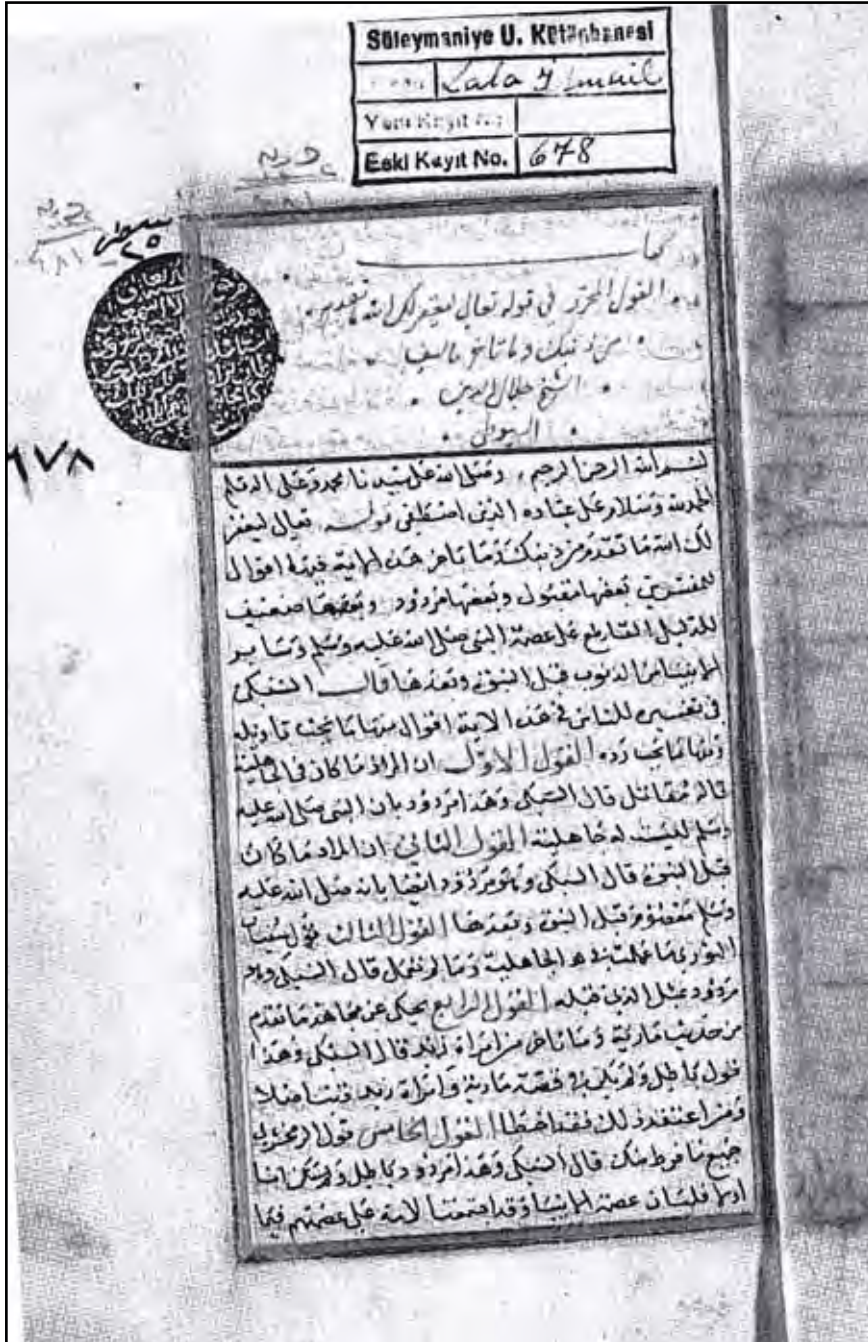 Süleymaniye U. Kütüphanesi
Lala İsmail
Yeni Kayıt No.
Eski Kayıt No. 678
٦٧٨
كتاب
القول المحرر في قوله تعالى ليغفر لك الله ما تقدم
من ذنبك وما تأخر تأليف
الشيخ جلال الدين
السيوطي
بسم الله الرحمن الرحيم وصلى الله على سيدنا محمد وعلى اله وسلم
الحمد لله وسلام على عباده الذين اصطفى قوله تعالى ليغفر
لك الله ما تقدم من ذنبك وما تاخر هذه الاية فيها اقوال
للمفسرين بعضها مقبول وبعضها مردود وبعضها ضعيف
للدليل القاطع على عصمة النبي صلى الله عليه وسلم وساير
الانبيا من الذنوب قبل النبوة وبعدها قال السبكي
في تفسيره للناس في هذه الاية اقوال منها ما يجب تاويله
ومنها ما يجب رده القول الاول ان المراد ما كان في الجاهلية
قاله مقاتل قال السبكي وهذا مردود بان النبي صلى الله عليه
وسلم ليست له جاهلية القول الثاني ان المراد ما كان
قبل النبوة قال السبكي وهو مردود ايضا بانه صلى الله عليه
وسلم معصوم قبل النبوة وبعدها القول الثالث قول سفيان
الثوري ما عملت في الجاهلية وما لم تعمل قال السبكي وهو
مردود بمثل الذي قبله القول الرابع يحكى عن مجاهد ما تقدم
من حديث مارية وما تاخر من امراة زيد قال السبكي وهذا
قول باطل ولم يكن في قصة مارية وامراة زيد ذنب اصلا
ومن اعتقد ذلك فقد اخطا القول الخامس قول الزمخشري
جميع ما فرط منك قال السبكي وهذا مردود
اما اولا فلبيان عصمة الانبيا وقد اجتمعت الامة على عصمتهم فيما